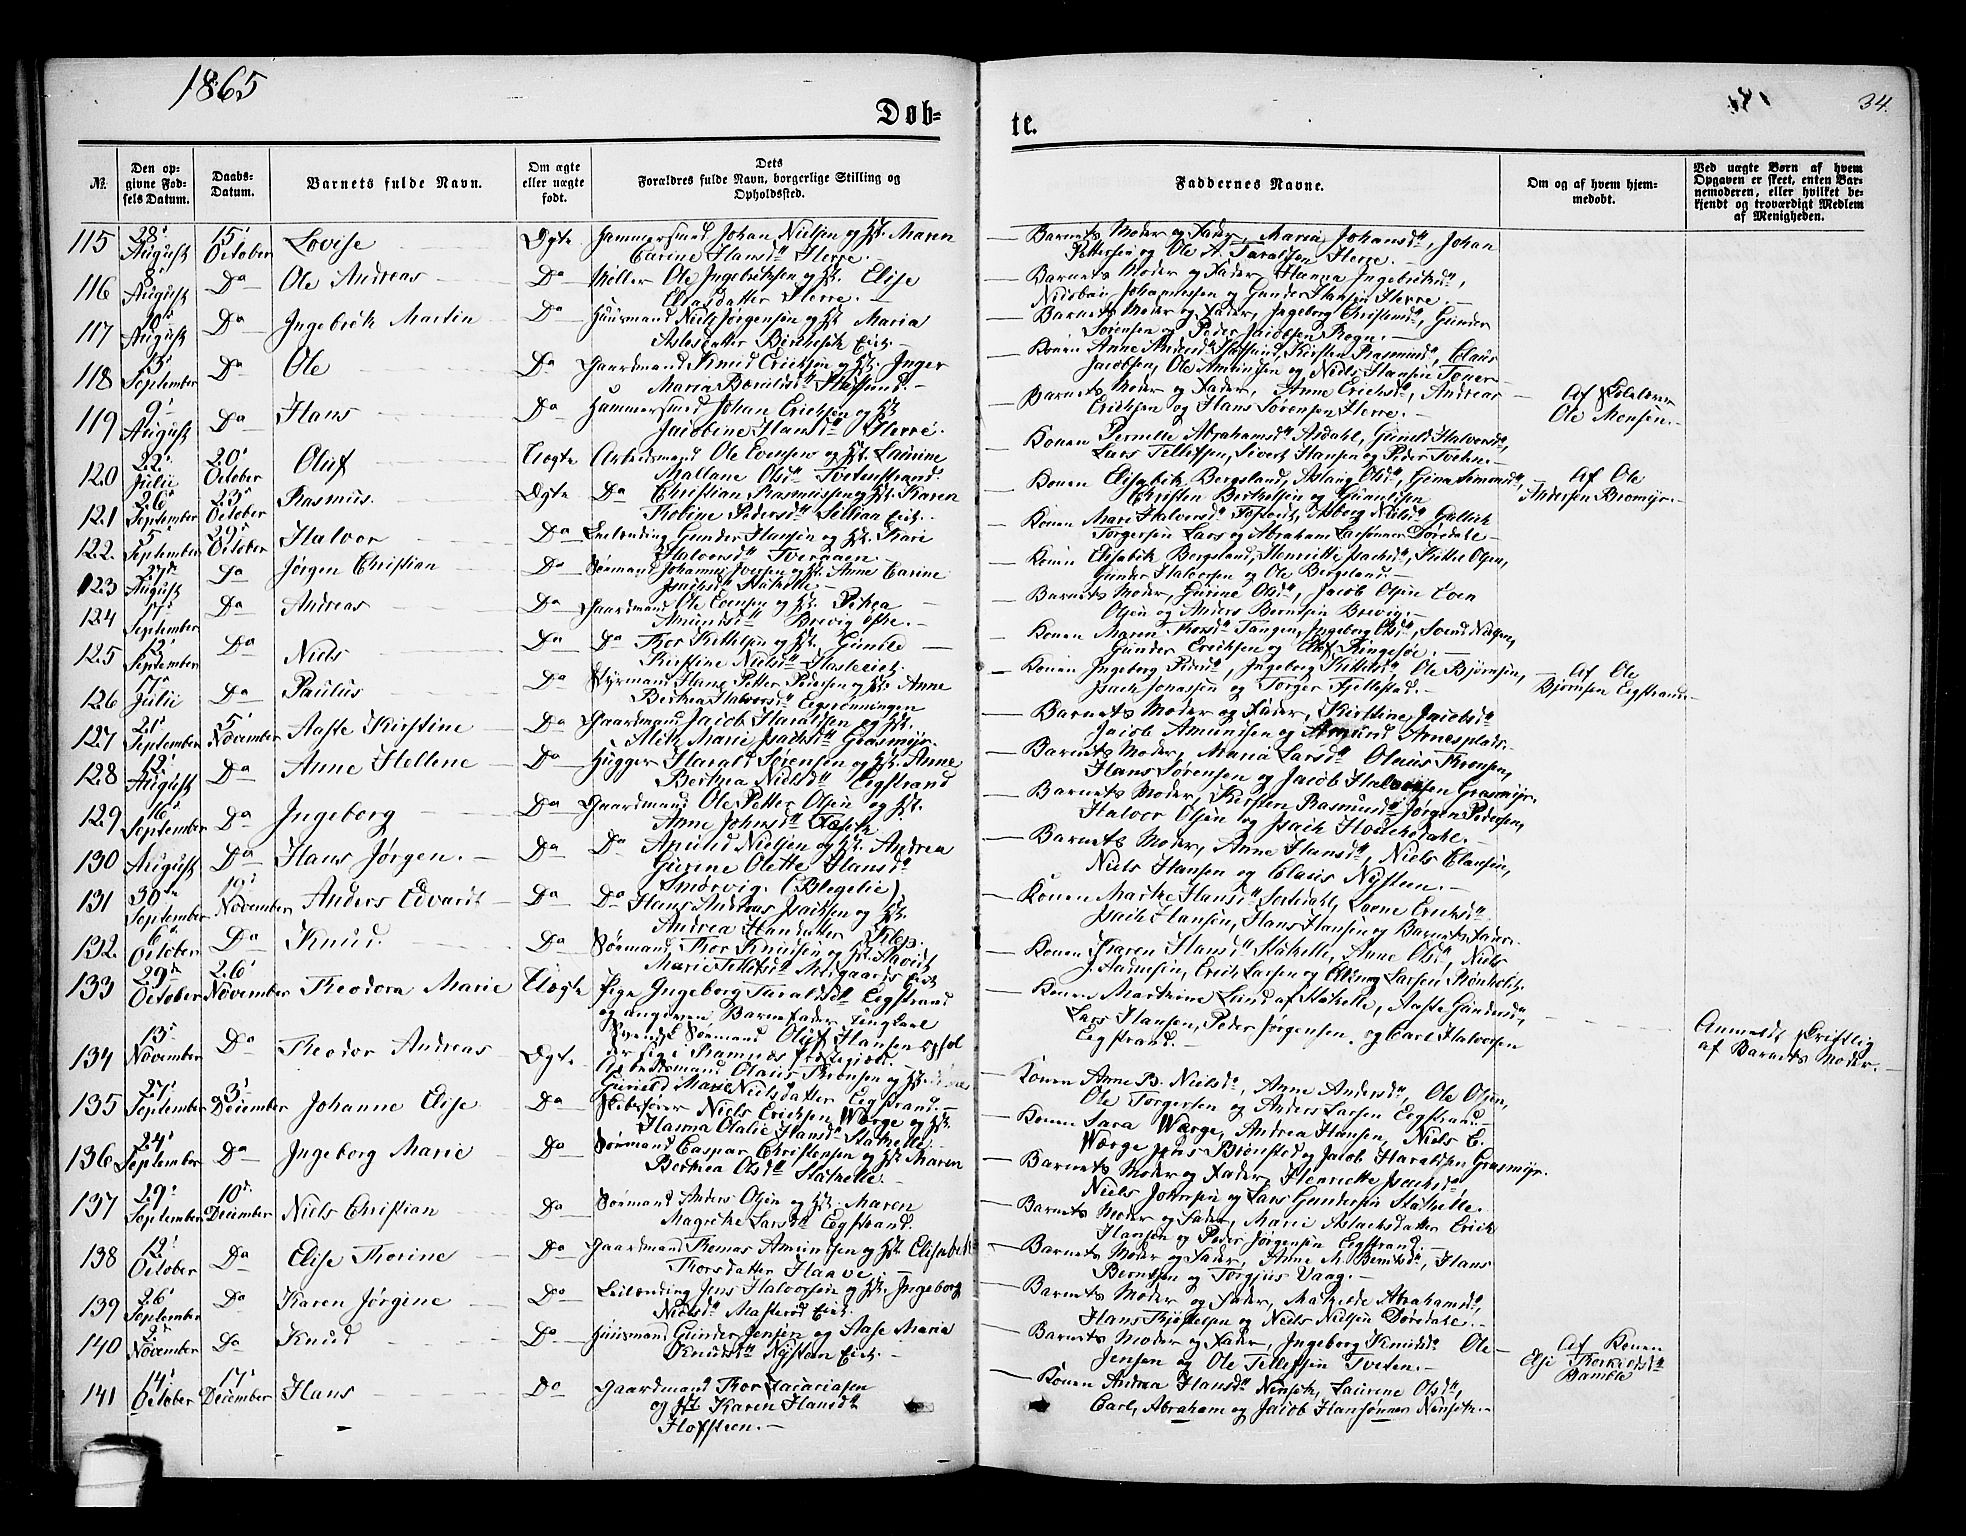 1865
34.
Døb-
te.
No.
Den op-
givne Fød-
sels Datum.
Daabs-
Datum.
Barnets fulde Navn.
Om ægte
eller uægte
født.
Dets
Forældres fulde Navn, borgerlige Stilling og
Opholdssted.
Faddernes Navne.
Om og af hvem hjem-
medøbt.
Ved uægte Børn af hvem
Opgaven er skeet, enten Bar-
nemoderen, eller hvilket be-
kjendt og troværdigt Medlem
af Menigheden.
115 28' August 15' October Lovise Ægte Hammersmed Johan Nielsen og H. Maren
Carine Hansd. Herre.
Barnets Moder og Fader, Maria Johansd., Johan
Pettersen og Ole A. Taraldsen Herre.
116 8' August Do Ole Andreas Do Møller Ole Ingebrethsen og H. Elise
Eliasdatter Herre.
Barnets Moder og Fader, Hanna Ingebrethsd.,
Nicolai Johannessen og Gunder Hansen Herre.
117 August Do Ingebreth Martin Do Huusmand Niels Jørgensen og H. Maria
Aslesdatter Eiet.
Barnets Moder og Fader, Ingeborg Christensd., Gunder
Sørensen og Peder Jacobsen Rogn.
118 13' September Do Ole Do Gaardmand Knud Ericksen og H. Inger
Maria
Konen Anne Kirsten Rasmusd., Claus
Jacobsen, Ole Amundsen og Niels Hansen Toner
119 9' August Do Hans Do Hammersmed Johan Ericksen og H.
Jacobine Hansd. Herre.
Barnets Moder og Fader, Anne Ericksd., Andreas
Ericksen og Hans Sørensen Herre.
Af Skolelærer
Ole Monsen.
120 22' Julii 20' October Oluf Uægte Arbeidsmand Ole Evensen og H. Laurine
Mallane Olsd. Tvetenstrand.
Konen Pernille Abrahamsd. Asdahl, Gunild Halvorsd.,
Lars Tellefsen, Sivert Hansen og Peder Tveten.
121 26' September 23' October Rasmus. Ægte Do Christian Rasmussen og H. Karen
Tobine Pedersd. Eiet.
Konen Elisabeth Bergsland, Aslaug Olsd., Gina Simonsd.,
Christen Berthelsen og Gunnulfsen
Af Ole
Andersen Bromyr.
122. 5' September 29' October Halvor Do Leilænding Gunder Hansen og H. Kari
Halvorsd.
Konen Mari Halvorsd.
Torgersen Lars og Abraham Larsønner Dørdale.
123 27' August Do Jørgen Christian Do Sømand Johannes Iversen og H. Anne Carine
Isachsd. Stathelle.
Konen Elisabeth Bergsland, Henriette Isachsd., Kittil Olsen,
Gunder Halvorsen og Ole Bergsland.
124 17' September Do Andreas Do Gaardmand Ole Evensen og H.
Amundsd. Brevig østre.
Barnets Moder, Gurine Olsd., Jacob Olsen Even
Olsen og Anders Berntsen Brevig.
125 12' September Do Niels Do Do Thor Kittilsen og H. Gunild
Kirstine Nielsd.
Konen Maren Thorsd. Tangen, Ingeborg Olsd., Svend Nielsen,
Gunder Ericksen og
126 17' Julii Do Paulus Do Styrmand Hans Petter Pedersen og H. Anne
Berthea Halvorsd. Eegrønningen
Konen Ingeborg Ingeborg Kittilsd., Ole Bjørnsen,
Isach Jonassen og Torger Fjellestad.
Af Ole
Bjørnsen Eegstrand
127 21' September 5' November Aaste Kirstine Do Gaardmand Jacob Haraldsen og H.
Marie Isachsd. Grasmyr.
Barnets Moder og Fader, Kirstine Jacobsd.
Jacob Amundsen og Amund
128 12' August Do Anne Hellene Do Hugger Harald Sørensen og H. Anne
Berthea Nielsd. Eegstrand
Barnets Moder, Maria Larsd. Olaus Thronsen,
Hans Sørensen og Jacob Halvorsen Grasmyr.
129 16' September Do Ingeborg Do Gaardmand Ole Petter Olsen og H.
Anne Johnsd.
Barnets Moder, Kirsten Rasmusd. Jørgen Pedersen,
Halvor Olsen og Isach
130 August Do Hans Jørgen. Do Do Nielsen og H. Andrea
Gurine Olette Hansd.
Barnets Moder, Anne Hansd., Niels Clausen,
Niels Hansen og Claus Nysteen.
131 30' September 19' November Anders Edvardt Do Do Hans Andreas Isachsen og H.
Andrea Hansdatter Klep.
Konen Marthe Hansd. Lovne Ericksd.
Isach Hansen, Hans Hansen og Barnets Fader.
132. 6' October Do Knud Do Sømand Thor Knudsen og H.
Marie Tellefsd.
Konen Karen Hansd. Stathelle, Anne Olsd., Niels
133 29' October 26' November Theodora Marie Uægte Pige Ingeborg Taraldsd. Eegstrand
og angiven Barnefader Ungkarl
Sømand Oluf Hansen
Konen Marthine Lund af Stathelle, Aaste Gundersd.,
Lars Hansen, Peder Jørgensen, og Carl Halvorsen
Eegstrand.
Anmeldt skriftlig
af Barnets Moder.
134 13' November Do Theodor Andreas Ægte Arbeidsmand Olaus Thronsen og H.
Gunild Marie Nielsdatter Eegstrand.
Konen Anne B. Nielsd., Anne Andersd., Ole Olsen,
Ole Torgersen og Anders Larsen Eegstrand
135 27' September 3' December Johanne Elise Do Skibsfører Niels Ericksen Wærge og H.
Hanna Olalie Hansd. Stathelle.
Konen Sara Wærge, Andrea Hansen, Niels E.
Wærge Jens Brønsted og Jacob Haraldsen Grasmyr.
136 24' September Do Ingeborg Marie Do Sømand Caspar Christensen og H. Maren
Berthea Olsd. Stathelle.
Barnets Moder og Fader, Henriette Isachsd.
Niels og Lars Gundersen Stathelle.
137 29' September 10' December Niels Christian Do Sømand Anders Olsen og H. Maren
Magrethe Larsd. Eegstrand.
Barnets Moder og Fader, Marie Aslachsdatter Erick
Hansen og Peder Jørgensen Eegstrand.
138 12' October Do Elise Thorine Do Gaardmand Thomas Amundsen og H. Elisabeth
Thorsdatter Haave.
Barnets Moder og Fader, Anne M. Berntsd., Hans
Berntsen og Torgjus Vaag.
139 26' September Do Karen Jørgine Do Leilænding Jens Halvorsen og H. Ingeborg
Nielsd. Eiet.
Barnets Moder og Fader, Mathilde Abrahamsd.,
Hans og Niels Nielsen Dørdale.
140 2' November Do Knud Do Huusmand Gunder Jensen og Aase Maria
Knudsd. Nysteen Eiet.
Barnets Moder og Fader, Ingeborg Knudsd. Ole
Jensen og Ole Tellefsen Tveten.
Af Konen
Else Thorkildsd.
Bamble
141 14' October 17' December Hans Do Gaardmand Thor Zacariasen
og H. Karen Hansd.
Hofsteen.
Konen Andrea Hansd. Laurine Olsd.,
Carl, Abraham og Jacob Hansønner